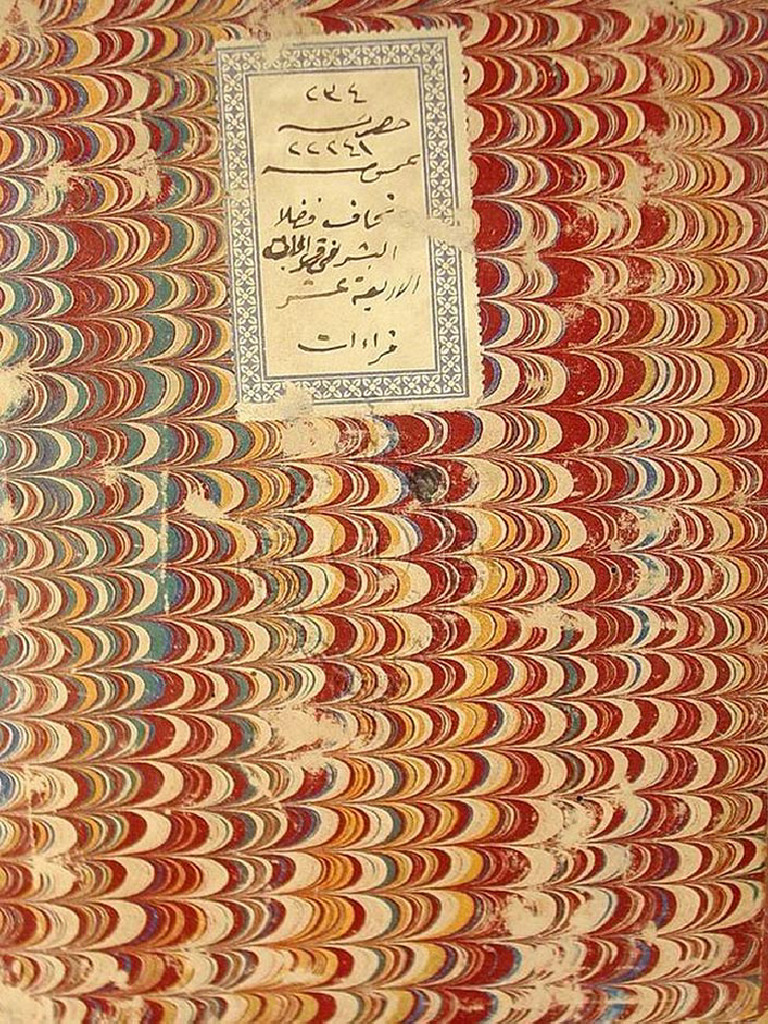 ٢٣٤
خصوصيه
٢٢٢٤١
عموميه
تحاف فضلا
البشر في قراات
الاربعة عشر
قراءات